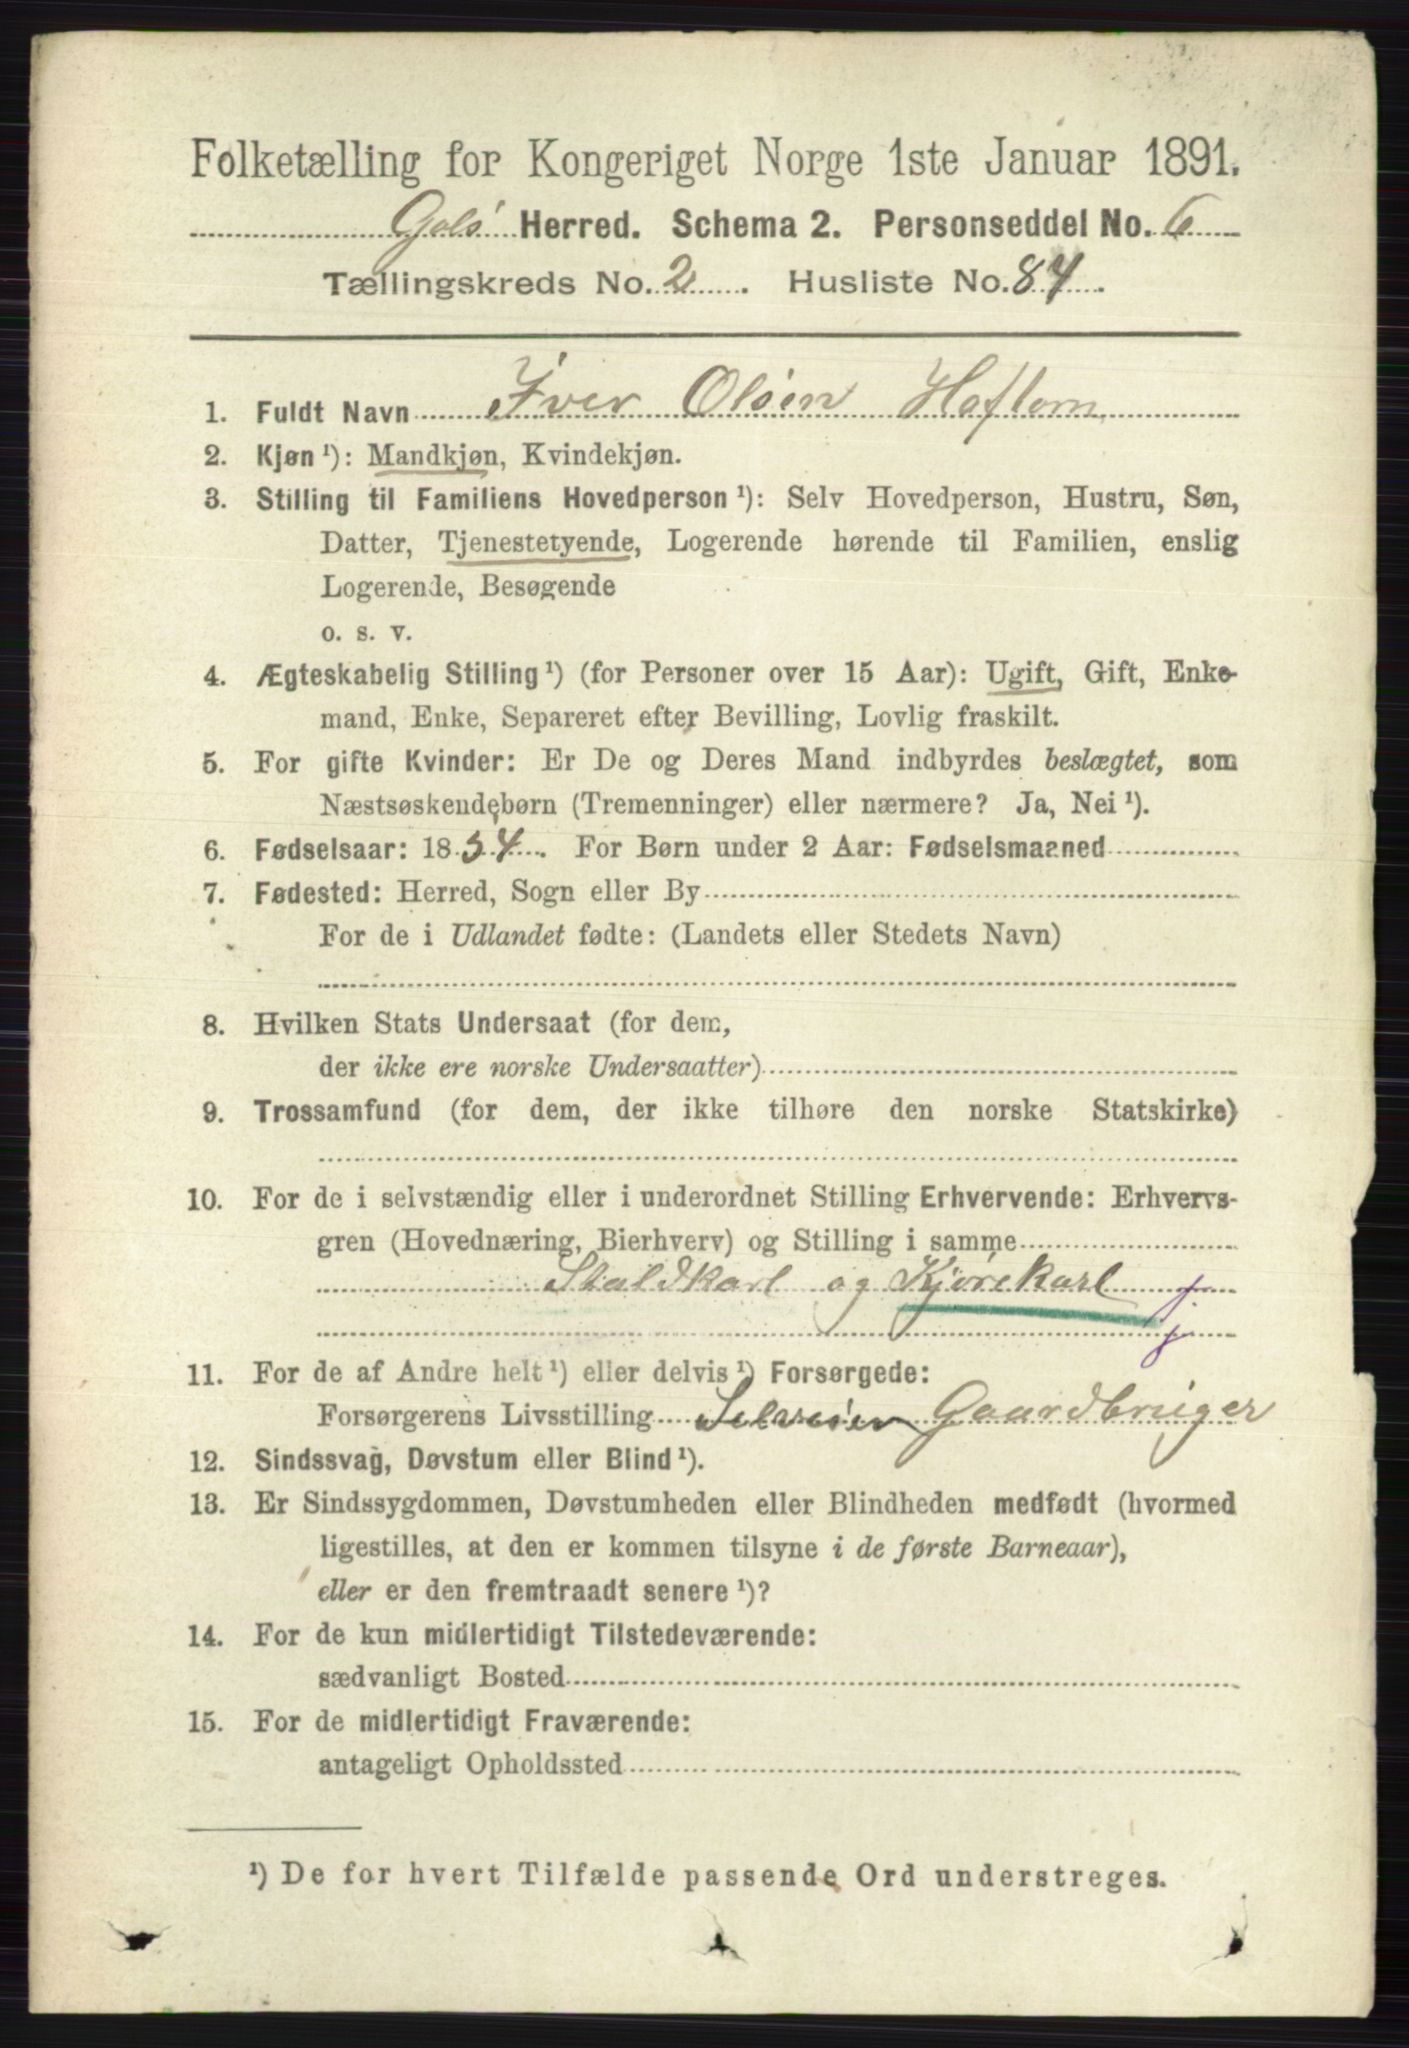 Folketælling for Kongeriget Norge 1ste Januar 1891.
Gols Herred. Schema 2. Personseddel No. 6
Tællingskreds No. 2. Husliste No. 84.
1. Fuldt Navn Iver Olsen Haftorn
2. Kjøn ¹): Mandkjøn, Kvindekjøn.
3. Stilling til Familiens Hovedperson ¹): Selv Hovedperson, Hustru, Søn,
Datter, Tjenestetyende, Logerende hørende til Familien, enslig
Logerende, Besøgende
o. s. v.
4. Ægteskabelig Stilling ¹) (for Personer over 15 Aar): Ugift, Gift, Enke-
mand, Enke, Separeret efter Bevilling, Lovlig fraskilt.
5. For gifte Kvinder: Er De og Deres Mand indbyrdes beslægtet, som
Næstsøskendebørn (Tremenninger) eller nærmere? Ja, Nei ¹).
6. Fødselsaar: 1834. For Børn under 2 Aar: Fødselsmaaned
7. Fødested: Herred, Sogn eller By
For de i Udlandet fødte: (Landets eller Stedets Navn)
8. Hvilken Stats Undersaat (for dem,
der ikke ere norske Undersaatter)
9. Trossamfund (for dem, der ikke tilhøre den norske Statskirke)
10. For de i selvstændig eller i underordnet Stilling Erhvervende: Erhvervs-
gren (Hovednæring, Bierhverv) og Stilling i samme
Staldkarl og Kjørekarl j
j
11. For de af Andre helt ¹) eller delvis ¹) Forsørgede:
Forsørgerens Livsstilling Selveier Gaardbruger
12. Sindssvag, Døvstum eller Blind ¹).
13. Er Sindssygdommen, Døvstumheden eller Blindheden medfødt (hvormed
ligestilles, at den er kommen tilsyne i de første Barneaar),
eller er den fremtraadt senere ¹)?
14. For de kun midlertidigt Tilstedeværende:
sædvanligt Bosted
15. For de midlertidigt Fraværende:
antageligt Opholdssted
¹) De for hvert Tilfælde passende Ord understreges.